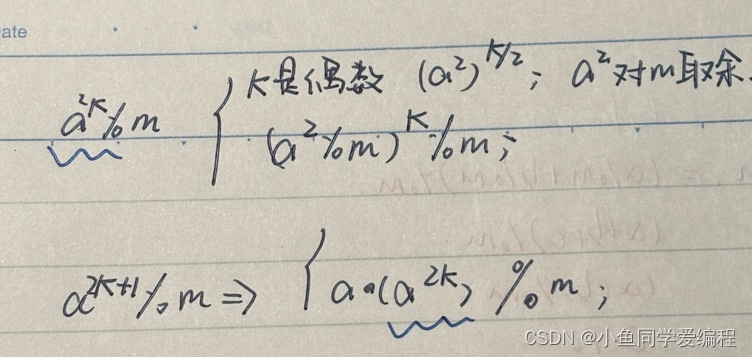 ate
K是偶数 (a²)^{K/2}; a²对m取余.
a^{2K}%m
(a²%m)^K%m;
a^{2K+1}%m => { a·(a^{2K}) %m;
CSDN @小鱼同学爱编程